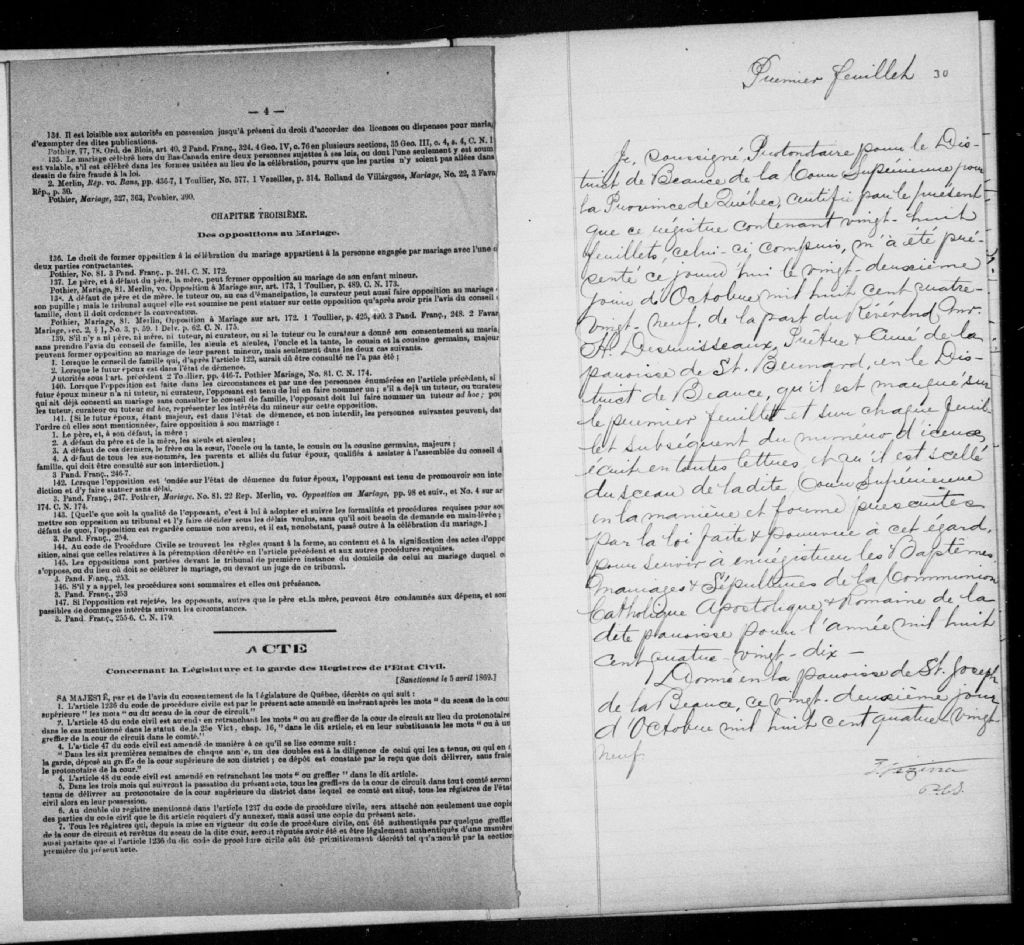 — 4 —
134. Il est loisible aux autorités en possession jusqu'à présent du droit d'accorder des licences ou dispenses pour maria
d'exempter des dites publications.
Pothier, 77, 78. Ord. de Blois, art 40. 2 Pand. Franç., 324. 4 Geo. IV, c. 76 en plusieurs sections, 35 Geo. III, c. 4, s. 4, C. N. 1
135. Le mariage célébré hors du Bas-Canada entre deux personnes sujettes à ses lois, ou dont l'une seulement y est soum
est valable, s'il est célébré dans les formes usitées au lieu de la célébration, pourvu que les parties n'y soient pas allées dans
dessein de faire fraude à la loi.
2. Merlin, Rép. vo. Bans, pp. 436-7, 1 Toullier, No. 577. 1 Vazeilles, p. 314. Rolland de Villargues, Mariage, No. 22, 3 Fava
Rép., p. 30.
Pothier, Mariage, 327, 363, Pouhier, 390.
CHAPITRE TROISIÈME.
Des oppositions au Mariage.
136. Le droit de former opposition à la célébration du mariage appartient à la personne engagée par mariage avec l'une d
deux parties contractantes.
Pothier, No. 81. 3 Pand. Franç., p. 241. C. N. 172.
137. Le père, et à défaut du père, la mère, peut former opposition au mariage de son enfant mineur.
Pothier, Mariage, 81. Merlin, vo. Opposition à Mariage, sur art. 173, 1 Toullier, p. 489. C. N. 173.
138. A défaut de père et de mère, le tuteur ou, au cas d'émancipation, le curateur peut aussi faire opposition au mariage
son pupille; mais le tribunal auquel elle est soumise ne peut statuer sur cette opposition qu'après avoir pris l'avis du conseil
famille, dont il doit ordonner la convocation.
Pothier, Mariage, 81. Merlin, Opposition à Mariage sur art. 172. 1 Toullier, p. 425, 490. 3 Pand. Franç., 248. 2 Favar
Mariage, sec. 2, § 1, No. 3, p. 59. 1 Delv. p. 62. C. N. 175.
139. S'il n'y a ni père, ni mère, ni tuteur, ni curateur, ou si le tuteur ou le curateur a donné son consentement au maria
sans prendre l'avis du conseil de famille, les aïeuls et aïeules, l'oncle et la tante, le cousin et la cousine germains, majeur
peuvent former opposition au mariage de leur parent mineur, mais seulement dans les deux cas suivants.
1. Lorsque le conseil de famille qui, d'après l'article 122, aurait dû être consulté ne l'a pas été;
2. Lorsque le futur époux est dans l'état de démence.
Autorités sous l'art. précédent 2 Toullier, pp. 446-7. Pothier Mariage, No. 81. C. N. 174.
140. Lorsque l'opposition est faite dans les circonstances et par une des personnes énumérées en l'article précédent, si
futur époux mineur n'a ni tuteur, ni curateur, l'opposant est tenu de lui en faire nommer un; s'il a déjà un tuteur, ou curateu
qui ait déjà consenti au mariage sans consulter le conseil de famille, l'opposant doit lui faire nommer un tuteur ad hoc; pou
les tuteur, curateur ou tuteur ad hoc, représenter les intérêts du mineur sur cette opposition.
141. [Si le futur époux, étant majeur, est dans l'état de démence, et non interdit, les personnes suivantes peuvent, dan
l'ordre où elles sont mentionnées, faire opposition à son mariage :
1. Le père, et, à son défaut, la mère;
2. A défaut du père et de la mère, les aïeuls et aïeules;
3. A défaut de ces derniers, le frère ou la sœur, l'oncle ou la tante, le cousin ou la cousine germains, majeurs;
4. A défaut de tous les sus-nommés, les parents et alliés du futur époux, qualifiés à assister à l'assemblée du conseil d
famille, qui doit être consulté sur son interdiction.]
3 Pand. Franç., 246-7.
142. Lorsque l'opposition est fondée sur l'état de démence du futur époux, l'opposant est tenu de promouvoir son inte
diction et d'y faire statuer sans délai.
3. Pand. Franç., 247. Pothier, Mariage. No. 81. 22 Rep. Merlin, vo. Opposition au Mariage, pp. 98 et suiv., et No. 4 sur ar
174. C. N. 174.
143. [Quel'e que soit la qualité de l'opposant, c'est à lui à adopter et suivre les formalités et procédures requises pour sou
mettre son opposition au tribunal et l'y faire décider sous les délais voulus, sans qu'il soit besoin de demande en main-levée;
défaut de quoi, l'opposition est regardée comme non avenu, et il est, nonobstant, passé outre à la célébration du mariage.]
3. Pand. Franç., 254.
144. Au code de Procédure Civile se trouvent les règles quant à la forme, au contenu et à la signification des actes d'oppo
sition, ainsi que celles relatives à la péremption décrétée en l'article précédent et aux autres procédures requises.
145. Les oppositions sont portées devant le tribunal de première instance du domicile de celui au mariage duquel o
s'oppose, ou du lieu où doit se célébrer le mariage, ou devant un juge de ce tribunal.
3. Pand. Franç., 253.
146. S'il y a appel, les procédures sont sommaires et elles ont préséance.
3. Pand. Franç., 253
147. Si l'opposition est rejetée, les opposants, autres que le père et la mère, peuvent être condamnés aux dépens, et son
passibles de dommages intérêts suivant les circonstances.
3. Pand. Franç., 255-6. C. N. 179.
ACTE
Concernant la Législature et la garde des Registres de l'Etat Civil.
[Sanctionné le 5 avril 1869.]
SA MAJESTÉ, par et de l'avis du consentement de la législature de Québec, décrète ce qui suit :
1. L'article 1236 du code de procédure civile est par le présent acte amendé en insérant après les mots " du sceau de la cour
supérieure " les mots " ou du sceau de la cour de circuit "
2. L'article 45 du code civil est amendé en retranchant les mots " ou au greffier de la cour de circuit au lieu du protonotaire
dans le cas mentionné dans le statut de la 25e Vict, chap. 16, " dans le dit article, et en leur substituant les mots " ou à un
greffier de la cour de circuit dans le comté."
4. L'article 47 du code civil est amendé de manière à ce qu'il se lise comme suit :
" Dans les six premières semaines de chaque année, un des doubles est à la diligence de celui qui les a tenus, ou qui en
la garde, déposé au greffe de la cour supérieure de son district; ce dépôt est constaté par le reçu que doit délivrer, sans frais
le protonotaire de la cour."
4. L'article 48 du code civil est amendé en retranchant les mots " ou greffier " dans le dit article.
5. Dans les trois mois qui suivront la passation du présent acte, tous les greffiers de la cour de circuit dans tout comté seront
tenus de délivrer au protonotaire de la cour supérieure du district dans lequel ce comté est situé, tous les régistres de l'état
civil alors en leur possession.
6. Au double du registre mentionné dans l'article 1237 du code de procédure civile, sera attaché non seulement une copie
des parties du code civil que le dit article requiert d'y annexer, mais aussi une copie du présent acte.
7. Tous les régistres qui, depuis la mise en vigueur du code de procédure civile, ont été authentiqués par quelque greffier
de la cour de circuit et revêtus du sceau de la dite cour, seront réputés avoir été et être légalement authentiqués d'une manière
aussi parfaite que si l'article 1236 du dit code de procédure civile eût été primitivement décrété tel qu'amendé par la section
première du présent acte.
Premier feuillet 30
Je, soussigné, Protonotaire pour le Dis-
trict de Beauce de la Cour Supérieure pour
la Province de Québec, certifie par le présent
que ce régistre contenant vingt-huit
feuillets, celui-ci compris, m'a été pré-
senté ce jourd'hui le vingt-deuxième
jour d'Octobre mil huit cent quatre-
vingt-neuf, de la part du Révérend Mr.
A. Desruisseaux, Prêtre & Curé de la
paroisse de St. Bernard, en le Dis-
trict de Beauce, qu'il est marqué sur
le premier feuillet et sur chaque feuil-
let subséquent du numéro d'iceux,
écrit en toutes lettres, & qu'il est scellé
du sceau de ladite Cour Supérieure
en la manière et forme prescrites
par la loi faite & pourvue à cet égard,
pour servir à enrégistrer les Baptêmes
Mariages & Sépultures de la Communion
Catholique Apostolique & Romaine de la
dite paroisse pour l'année mil huit
cent quatre-vingt-dix —
Donné en la paroisse de St. Joseph
de la Beauce, ce vingt-deuxième jour
d'Octobre mil huit cent quatre vingt
neuf.
Vézina